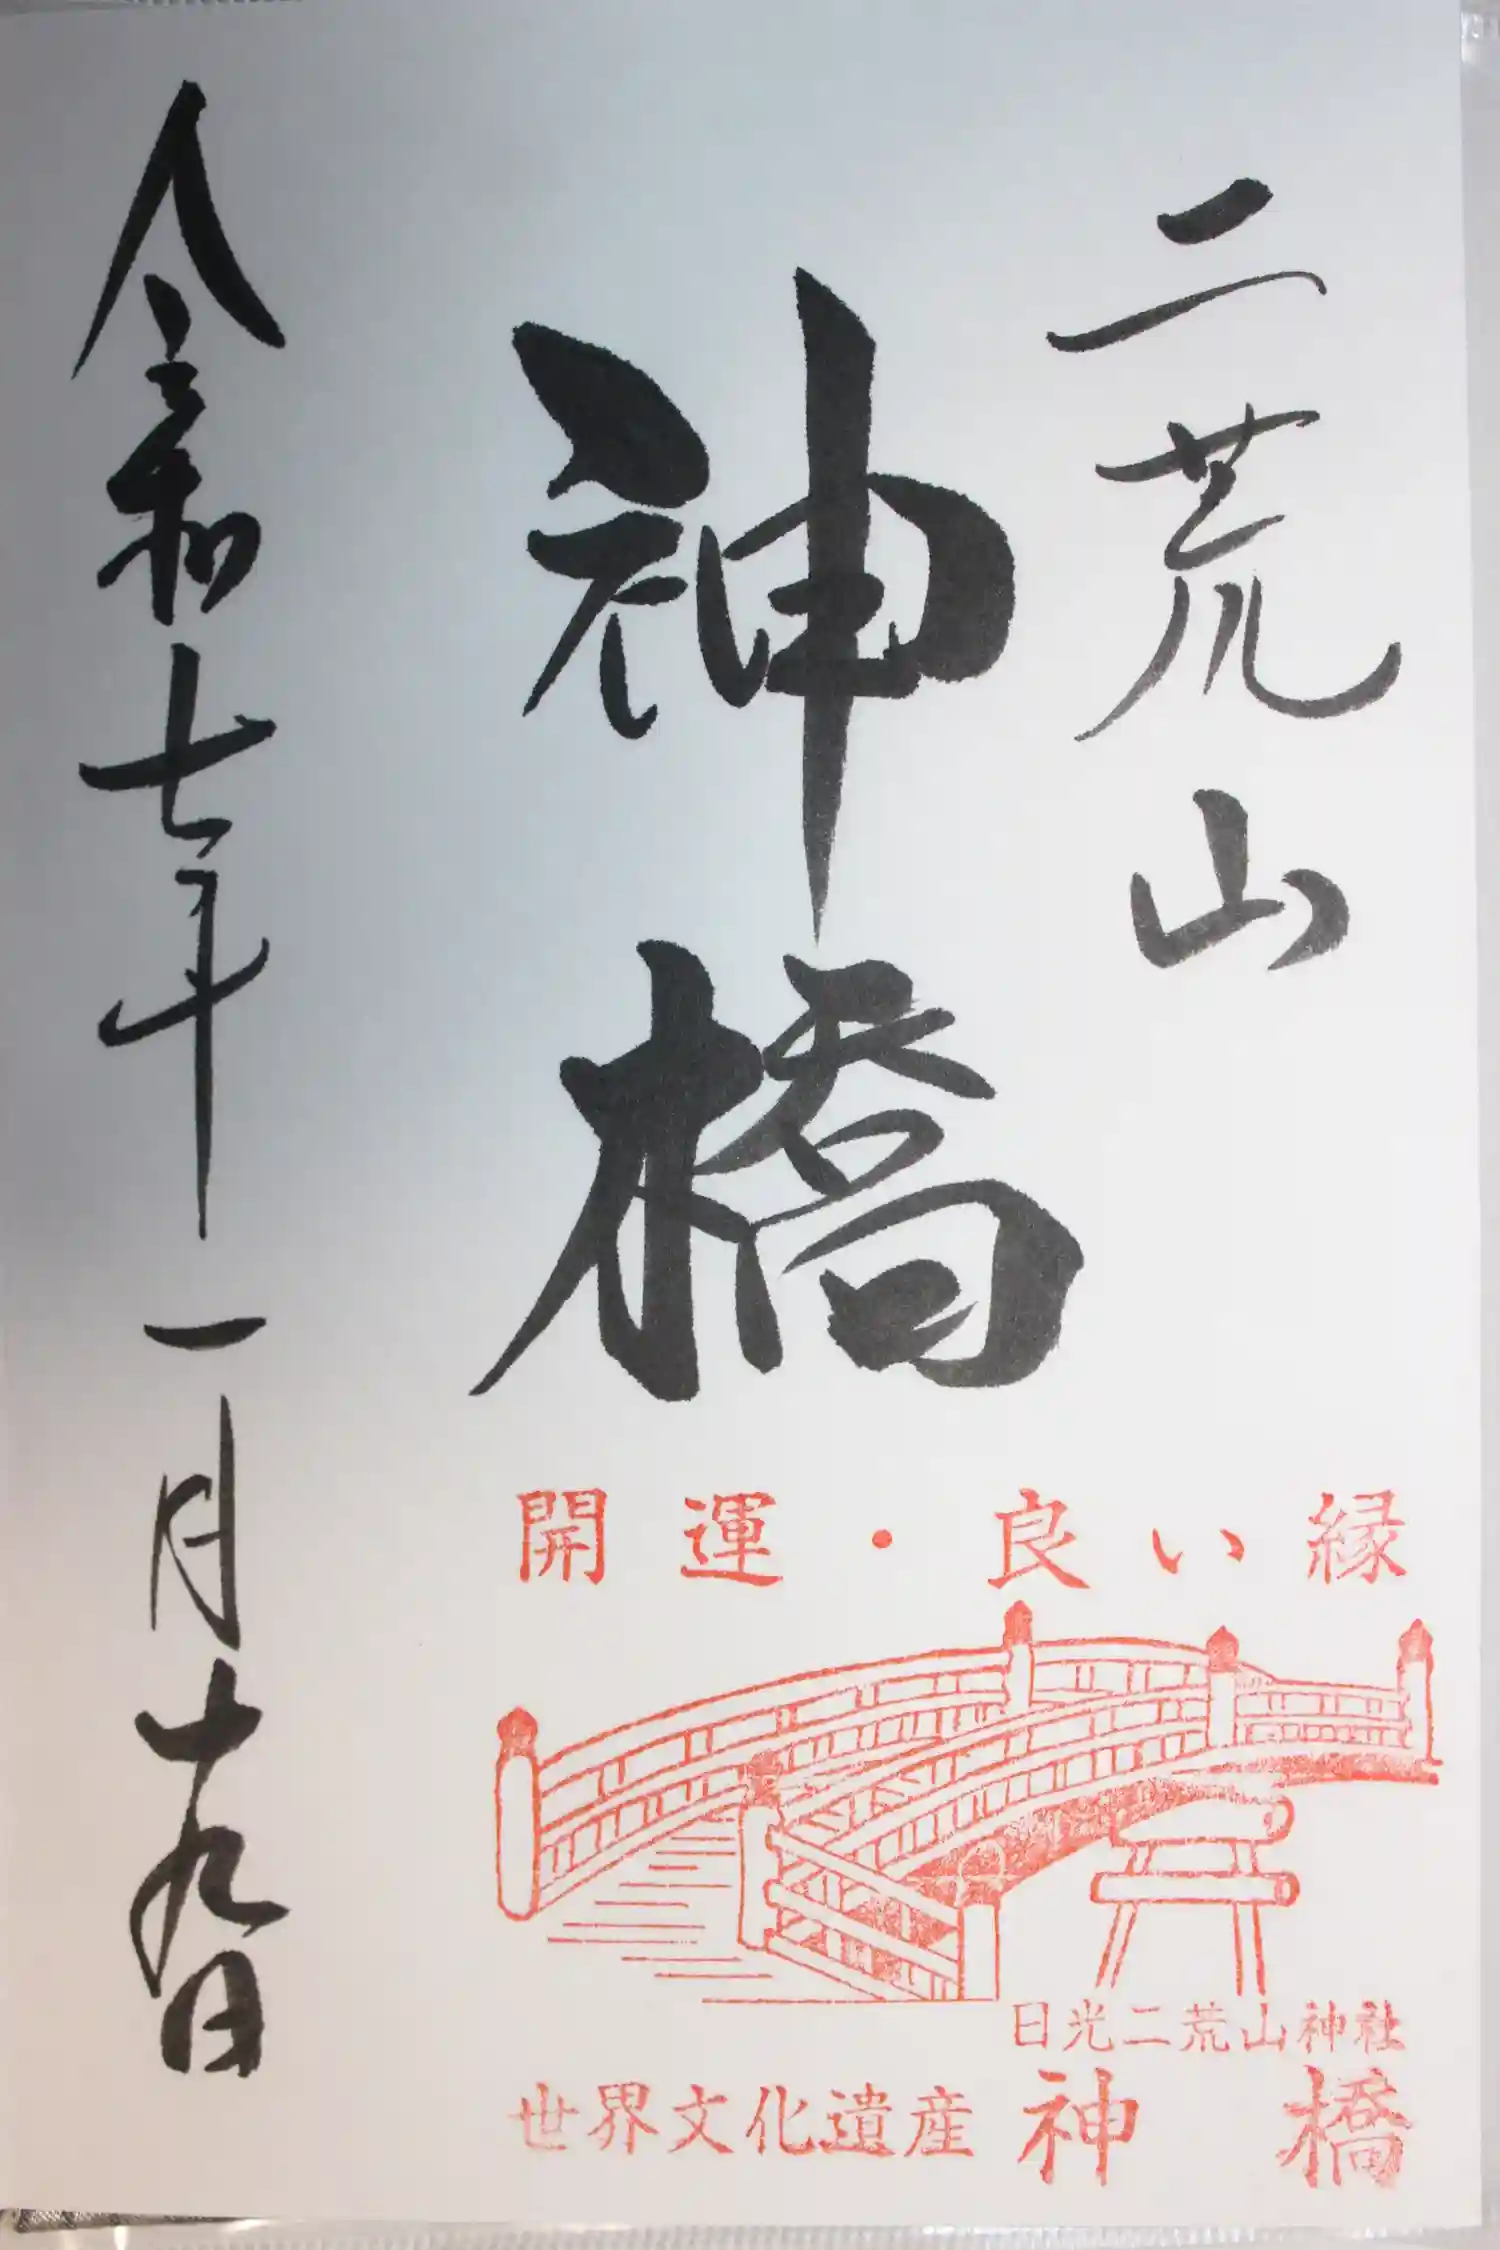 二荒山
神橋
令和七年一月十九日
開運・良い縁
日光二荒山神社
世界文化遺産 神橋